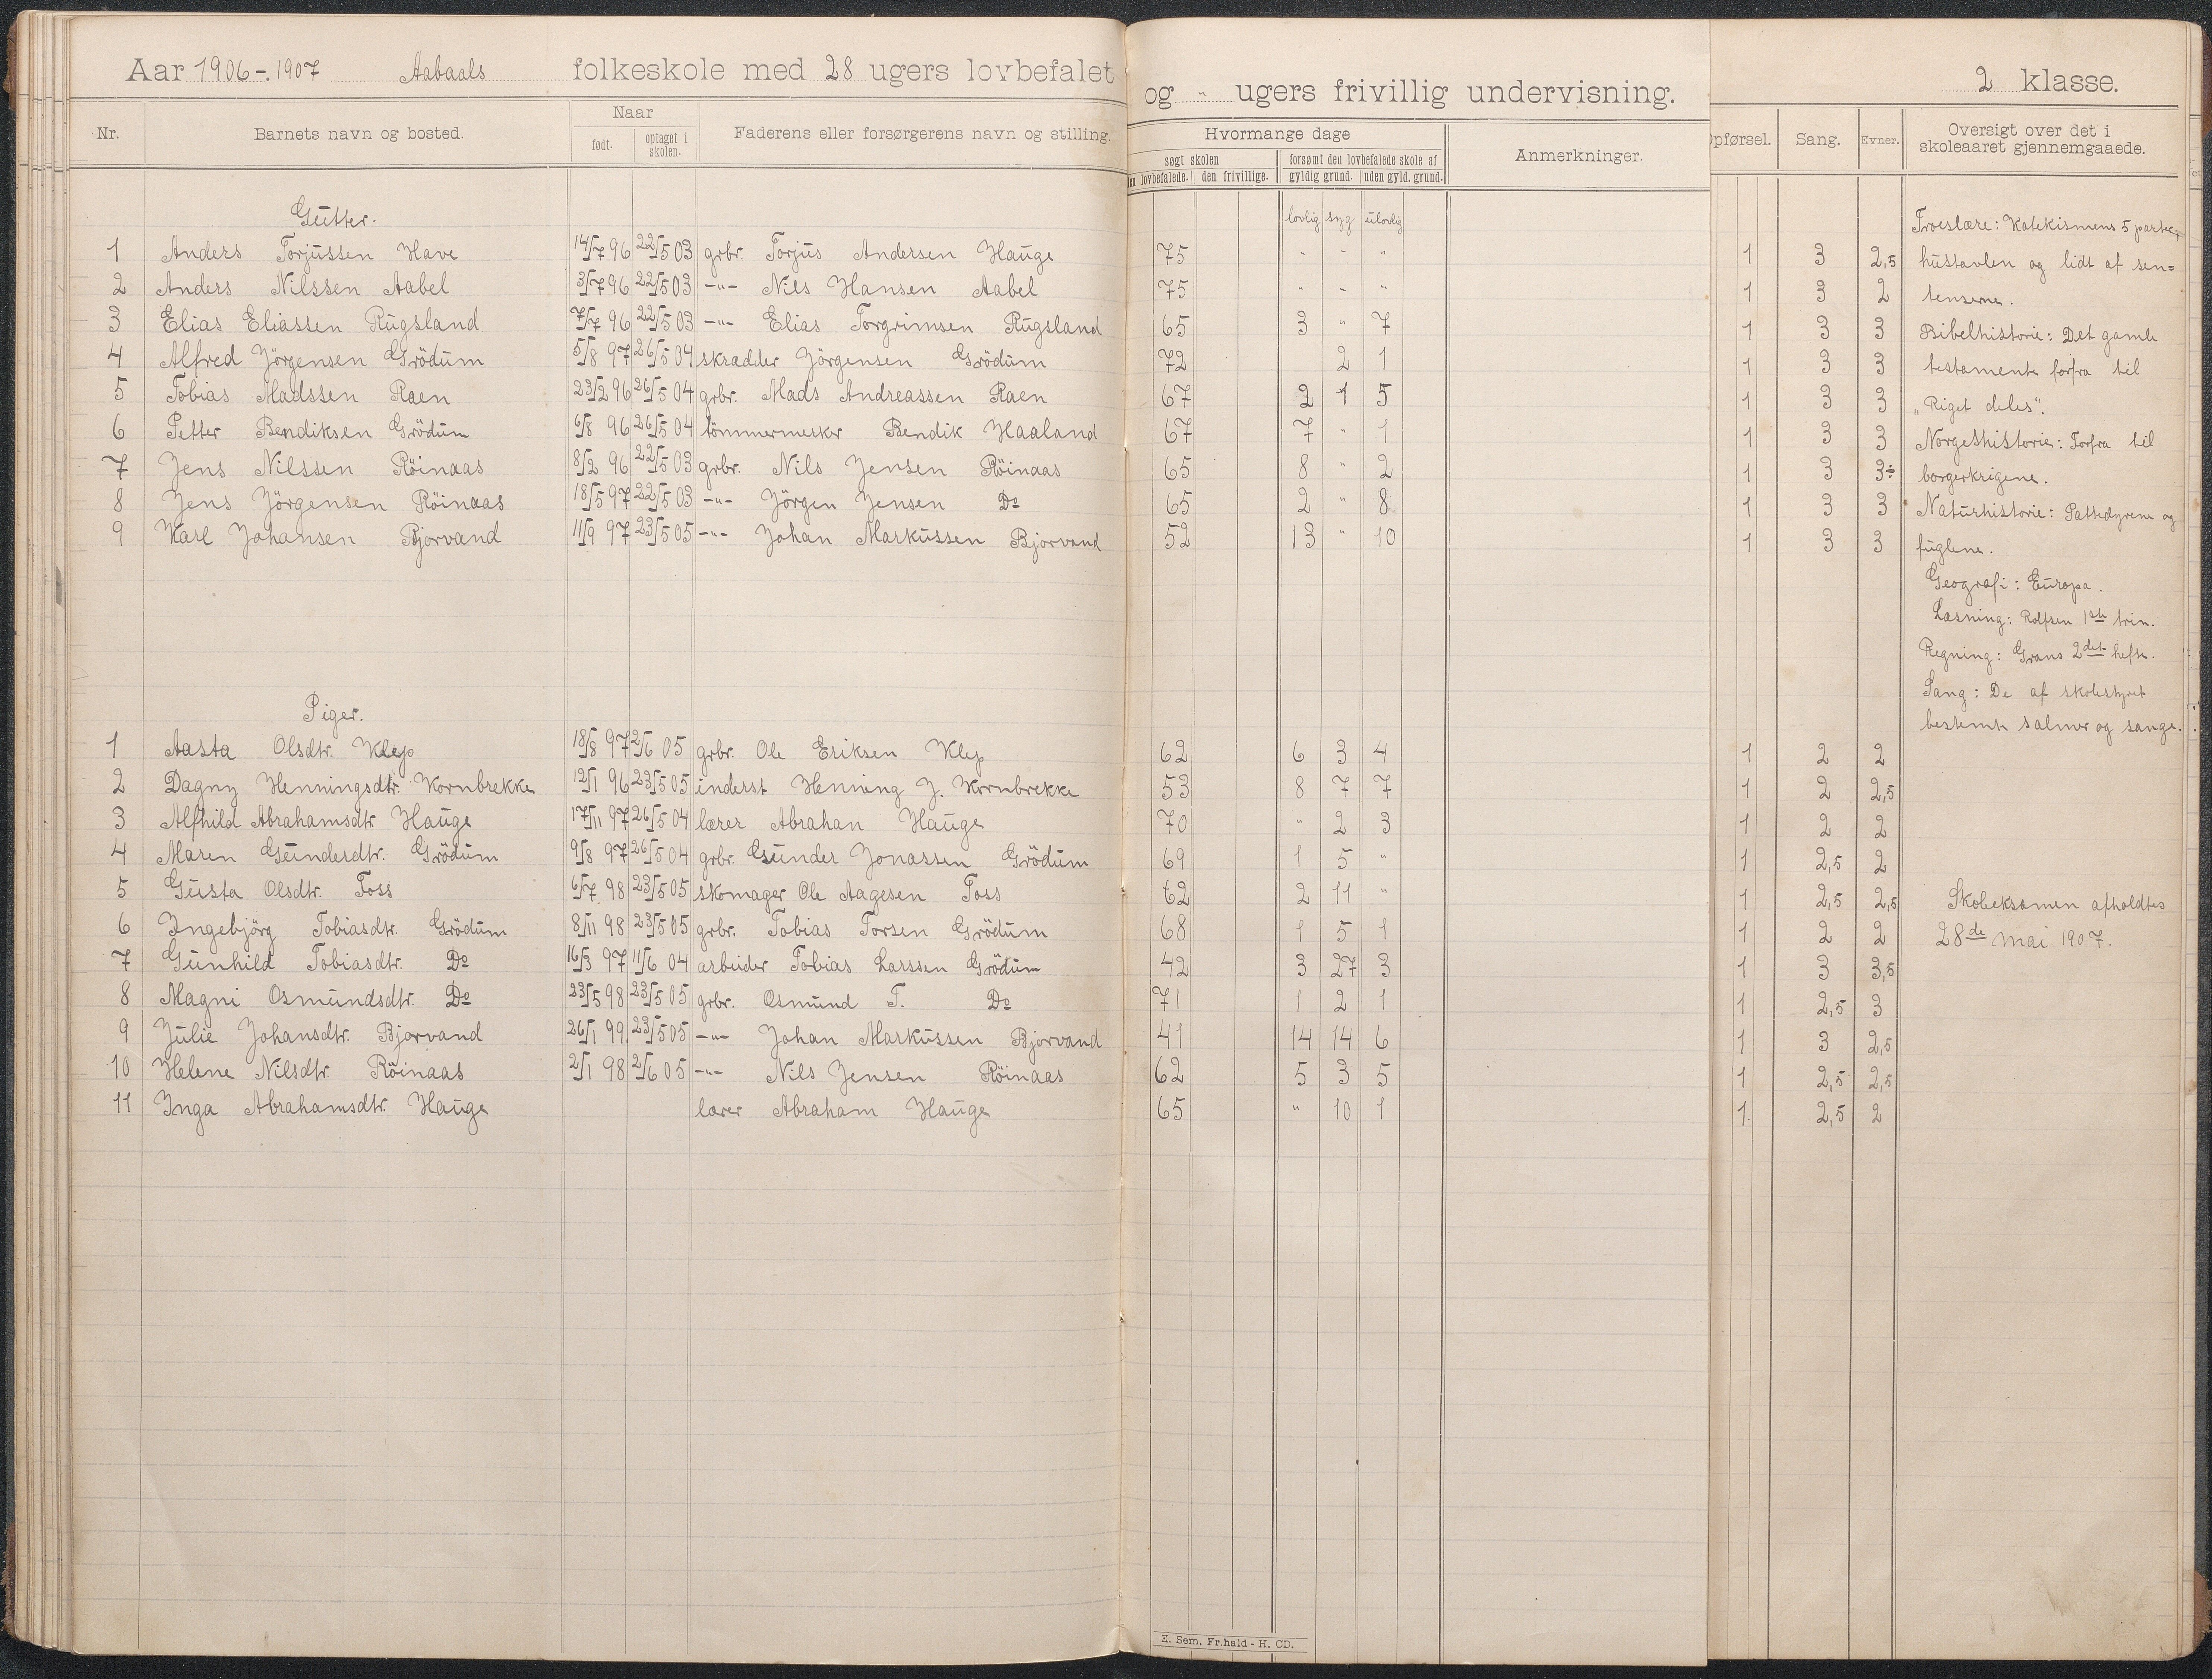 Aar 1906-1907 Aabaals folkeskole med 28 ugers lovbefalet og " ugers frivillig undervisning. 2 klasse.
Nr. Barnets navn og bosted. Naar født. optaget i skolen. Faderens eller forsørgerens navn og stilling. Hvormange dage søgt skolen den lovbefalede. den frivillige. forsømt den lovbefalede skole af gyldig grund. uden gyld. grund. Anmerkninger. Opførsel. Sang. Evner. Oversigt over det i skoleaaret gjennemgaaede.
Gutter. lovlig syg ulovlig
1 Anders Torjussen Have 14/7 96 22/5 03 grbr. Torjus Andersen Hauge 75 " " " 1 3 2,5
2 Anders Nilssen Aabel 3/7 96 22/5 03 -"- Nils Hansen Aabel 75 " " " 1 3 2
3 Elias Eliassen Rugsland 7/7 96 22/5 03 -"- Elias Torgrimsen Rugsland 65 3 " 7 1 3 3
4 Alfred Jörgensen Grödum 5/8 97 26/5 04 skrædder Jörgensen Grödum 72 2 1 1 3 3
5 Tobias Madssen Raen 23/2 96 26/5 04 grbr. Mads Andreassen Raen 67 2 1 5 1 3 3
6 Petter Bendiksen Grödum 6/8 96 26/5 04 tömmermester Bendik Haaland 67 7 " 1 1 3 3
7 Jens Nilssen Röinaas 8/2 96 22/5 03 grbr. Nils Jensen Röinaas 65 8 " 2 1 3 3÷
8 Jens Jörgensen Röinaas 18/5 97 22/5 03 -"- Jörgen Jensen Do 65 2 " 8 1 3 3
9 Karl Johansen Bjorvand 11/9 97 23/5 05 -"- Johan Markussen Bjorvand 52 13 " 10 1 3 3
Piger.
1 Aasta Olsdtr. Klep 18/8 97 2/6 05 grbr. Ole Eriksen Klep 62 6 3 4 1 2 2
2 Dagny Henningsdtr. Kornbrekke 12/1 96 23/5 05 inderst Henning J. Kornbrekke 53 8 7 7 1 2 2,5
3 Alfhild Abrahamsdtr. Hauge 17/11 97 26/5 04 lærer Abrahan Hauge 70 " 2 3 1 2 2
4 Maren Gunderdtr. Grödum 9/8 97 26/5 04 grbr. Gunder Jonassen Grödum 69 1 5 " 1 2,5 2
5 Gusta Olsdtr. Foss 6/7 98 23/5 05 skomager Ole Aagesen Foss 62 2 11 " 1 2,5 2,5
6 Ingebjörg Tobiasdtr. Grödum 8/11 98 23/5 05 grbr. Tobias Torsen Grödum 68 1 5 1 1 2 2
7 Gunhild Tobiasdtr. Do 16/3 97 11/6 04 arbeider Tobias Larssen Grödum 42 3 27 3 1 3 3,5
8 Magni Osmundsdtr. Do 23/5 98 23/5 05 grbr. Osmund T. Do 71 1 2 1 1 2,5 3
9 Julie Johansdtr. Bjorvand 26/1 99 23/5 05 -"- Johan Markussen Bjorvand 41 14 14 6 1 3 2,5
10 Helene Nilsdtr. Röinaas 2/1 98 2/6 05 -"- Nils Jensen Röinaas 62 5 3 5 1 2,5 2,5
11 Inga Abrahamsdtr. Hauge lærer Abraham Hauge 65 " 10 1 1 2,5 2
Troeslære: Katekismens 5 parter,
hustavlen og lidt af sen=
tenserne.
Bibelhistorie: Det gamle
testamente forfra til
"Riget deles".
Norgeshistorie: Forfra til
borgerkrigene.
Naturhistorie: Pattedyrene og
fuglene.
Geografi: Europa.
Læsning: Rolfsen 1ste trin.
Regning: Grans 2det hefte.
Sang: De af skolestyret
bestemte salmer og sange.
Skoleeksamen afholdtes
28de mai 1907.
E. Sem. Fr.hald - H. CD.